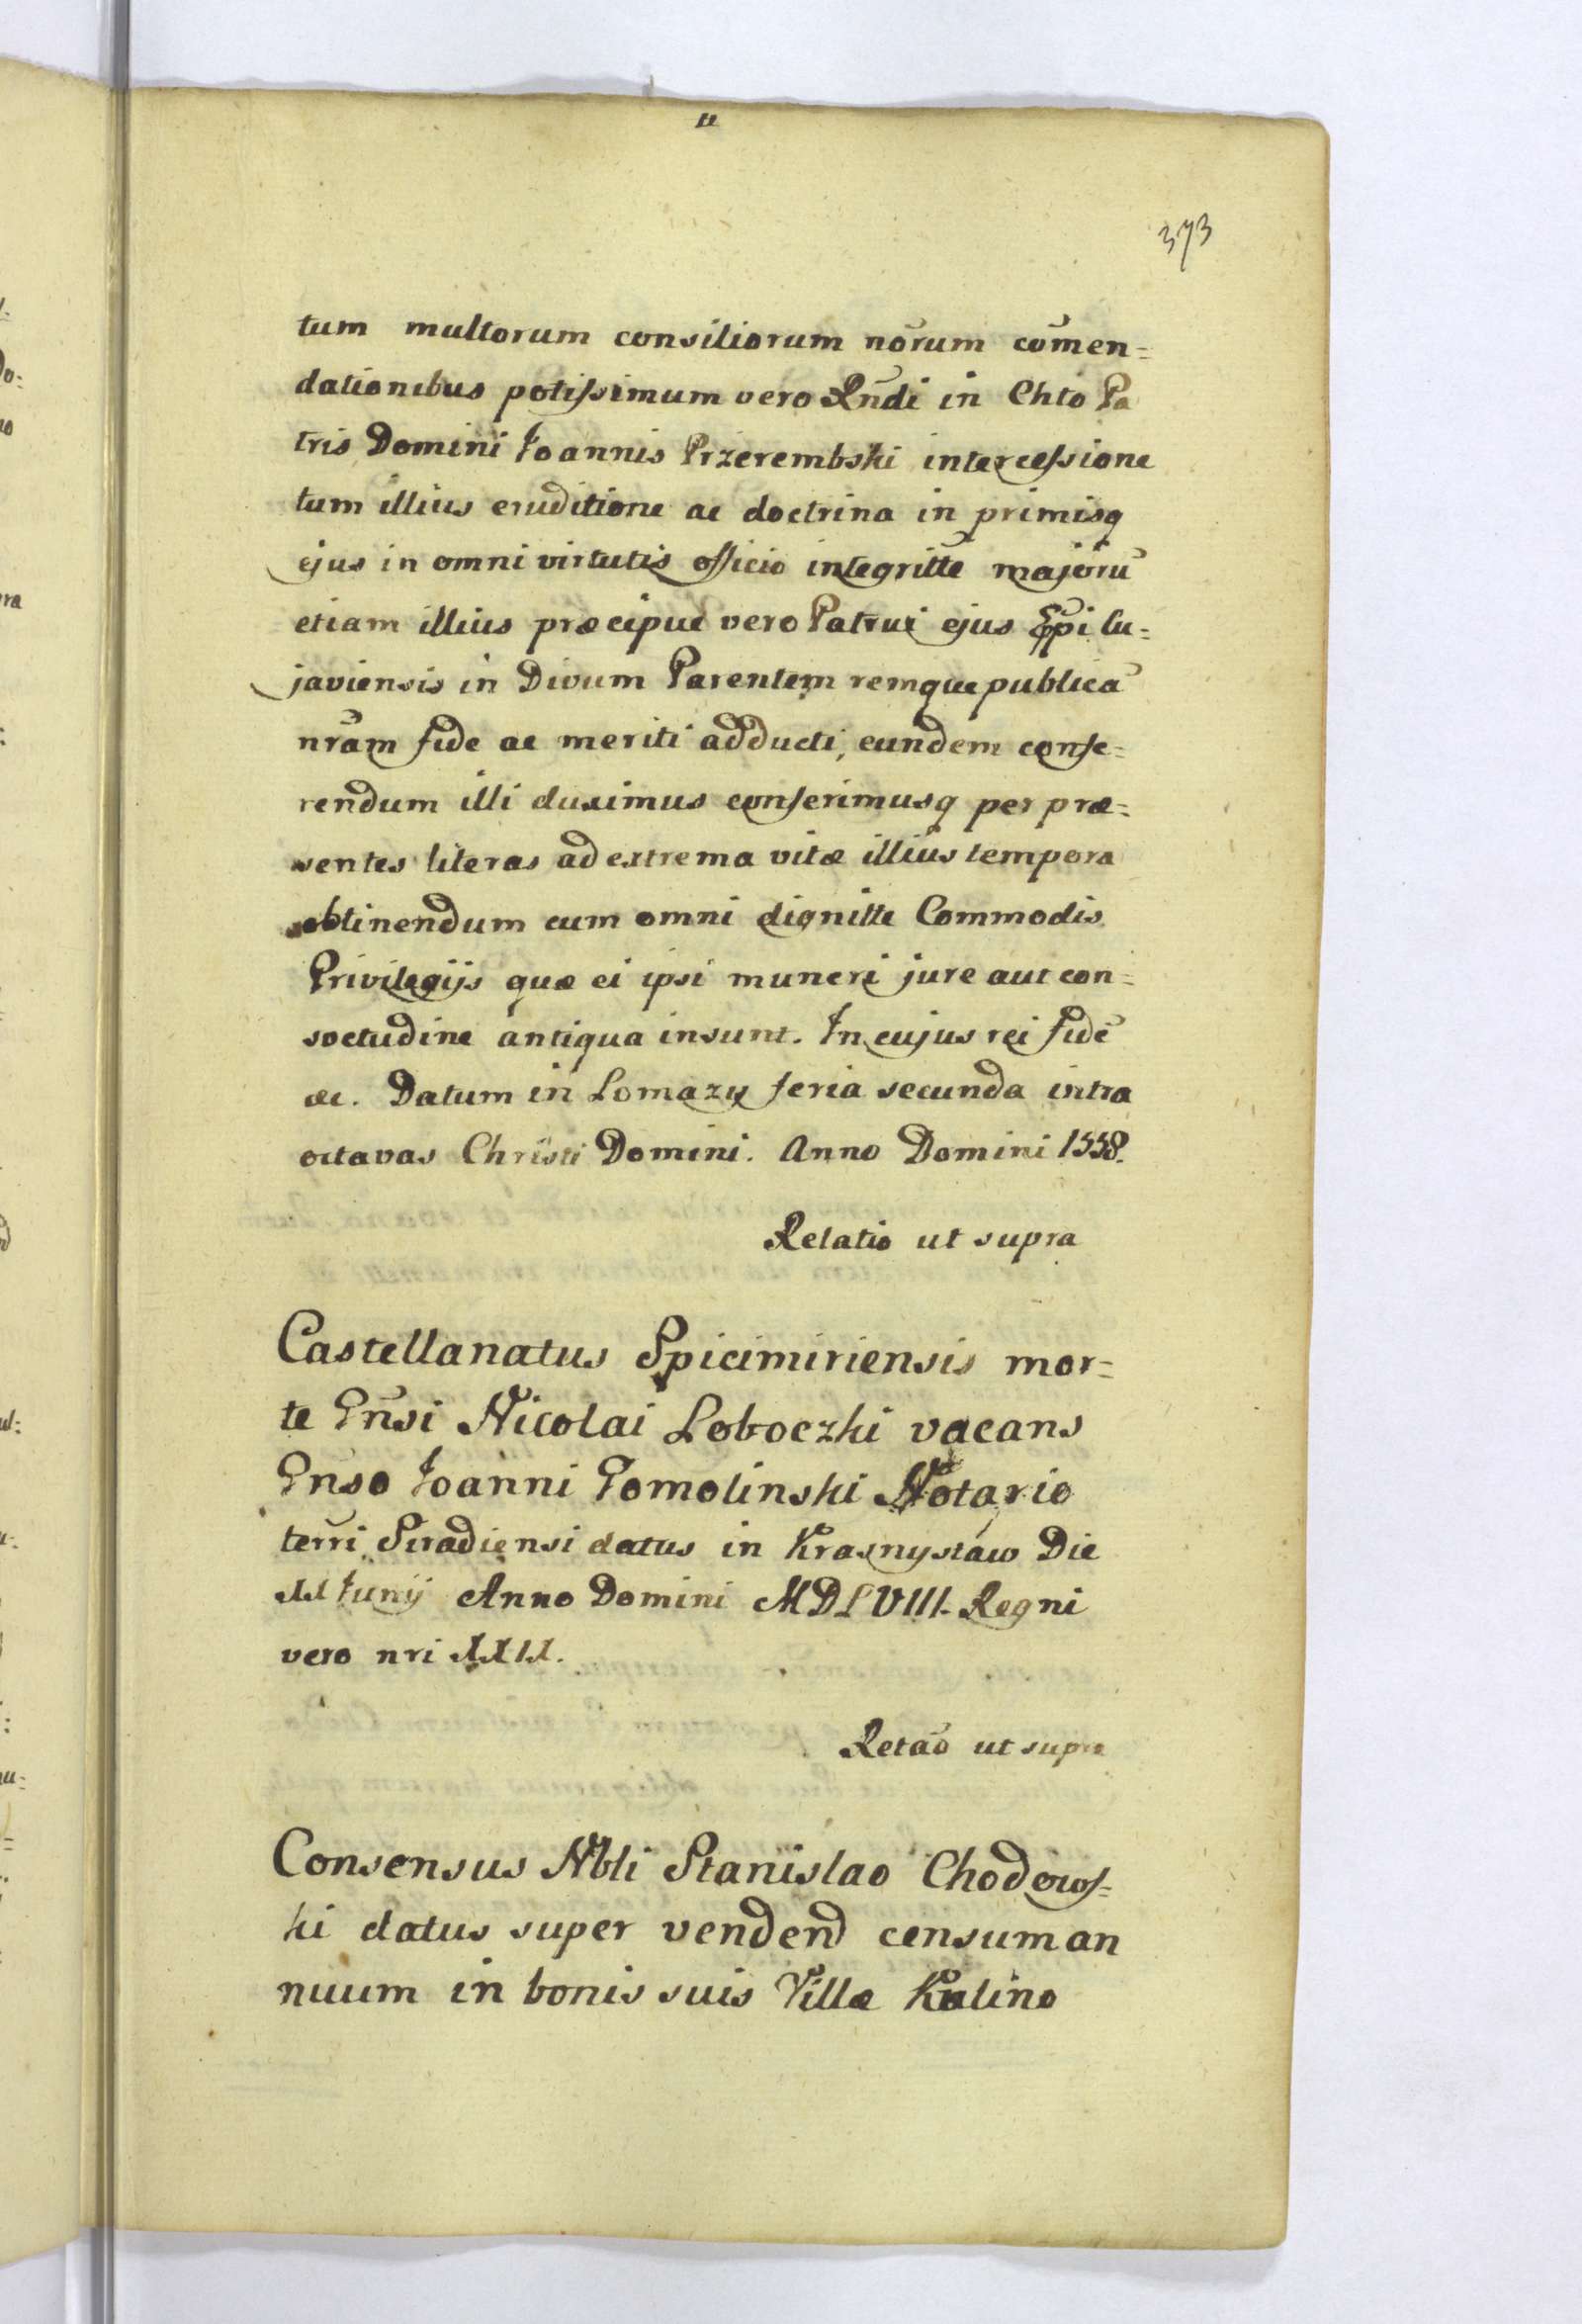 373
tum multorum consiliorum nōrum cōmen=
dationibus potissimum vero Rndi in Chto Pa
tris Domini Joannis Przerembski intercessione
tum illius eruditione ac doctrina in primisq
ejus in omni virtutis officio integritte majorū
etiam illius præcipue vero Patrui ejus Eppi Cu=
javiensis in Divum Parentem remque publicā
nram fide ac meriti adducti, eundem confe=
rendum illi duximus conferimusq per præ=
sentes literas ad extrema vitæ illius tempora
obtinendum cum omni dignitte Commodis
Privilegijs quæ ei ipsi muneri jure aut con=
soetudine antiqua insunt. In cujus rei fidē
&c. Datum in Lomazy feria secunda intra
octavas Christi Domini. Anno Domini 1558.
Relatio ut supra
Castellanatus Spicimiriensis mor=
te Gnsi Nicolai Loboczki vacans
Gnso Joanni Pomolinski Notario
terri Siradiensi datus in Krasnystaw Die
XX Junij Anno Domini MDLVIII. Regni
vero nri XXIX.
Relaō ut supra
Consensus Nbli Stanislao Chodows=
ki datus super vendend censum an
nuum in bonis suis Villæ Kalino